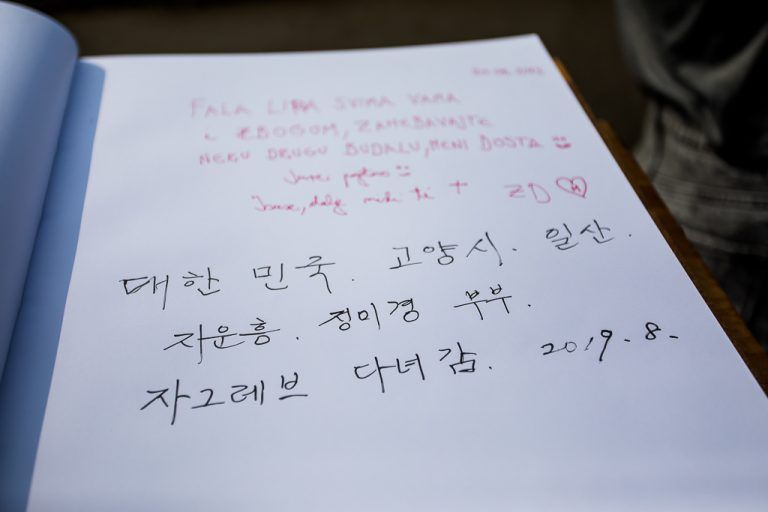 FALA LIPA SVIMA VAMA
ZBOGOM, ZAJEBAVAJTE
NEKU DRUGU BUDALU, MENI DOSTA
ZD
대한 민국. 고양시. 일산.
차운흥. 정미경 부부.
자그레브 다녀감. 2019. 8.